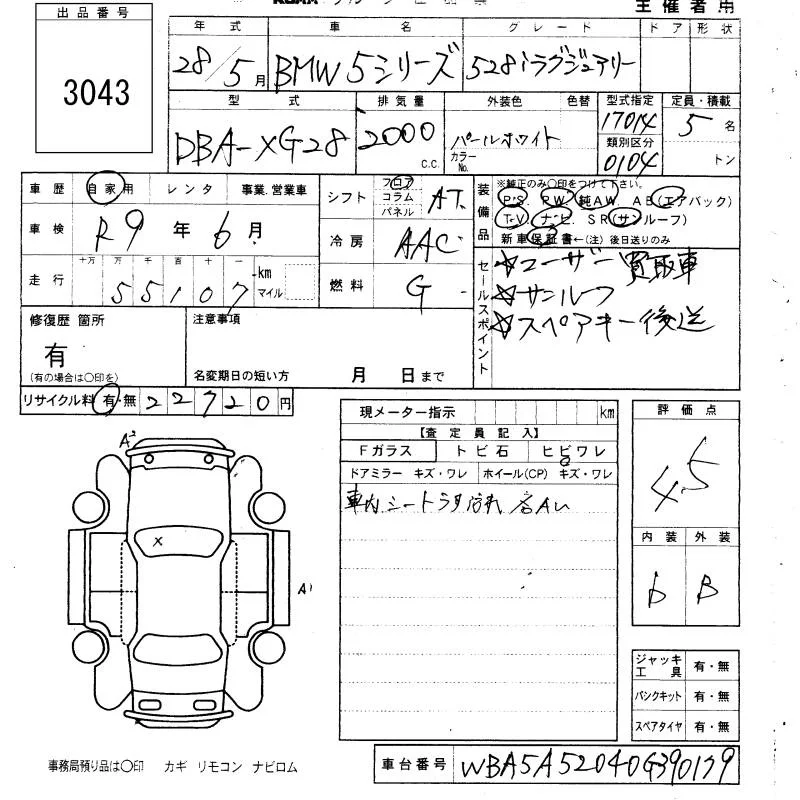 出品番号
3043
主催者用
年式 車名 グレード ドア 形状
28/5月 BMW 5シリーズ 528iラグジュアリー
型式 排気量 外装色 色替 型式指定 定員・積載
DBA-XG28 2000 C.C. パールホワイト カラーNo. 17014 5名
類別区分
0104 トン
車歴 自家用 レンタ 事業.営業車
車検 R9年6月
走行 十万 万 千 百 十 一
55107 km マイル
シフト フロア コラム パネル AT
冷房 AAC
燃料 G
装備品
※純正のみ○印をつけて下さい。
P.S. P.W. 純A.W. A.B(エアバック)
T.V. ナビ S.R(サンルーフ)
新車保証書←(注)後日送りのみ
セールスポイント
☆ユーザー買取車
☆サンルーフ
☆スペアキー後送
修復歴 箇所
有
(有の場合は○印を)
注意事項
名変期日の短い方 月 日まで
リサイクル料 有・無 22720円
現メーター指示 km
【査定員記入】
Fガラス トビ石 ヒビワレ
ドアミラー キズ・ワレ ホイール(CP) キズ・ワレ
車内シート
評価点
4.5
内装 外装
b B
A2
X
A1
ジャッキ工具 有・無
パンクキット 有・無
スペアタイヤ 有・無
事務局預り品は○印 カギ リモコン ナビロム
車台番号 WBA5A52040G390179